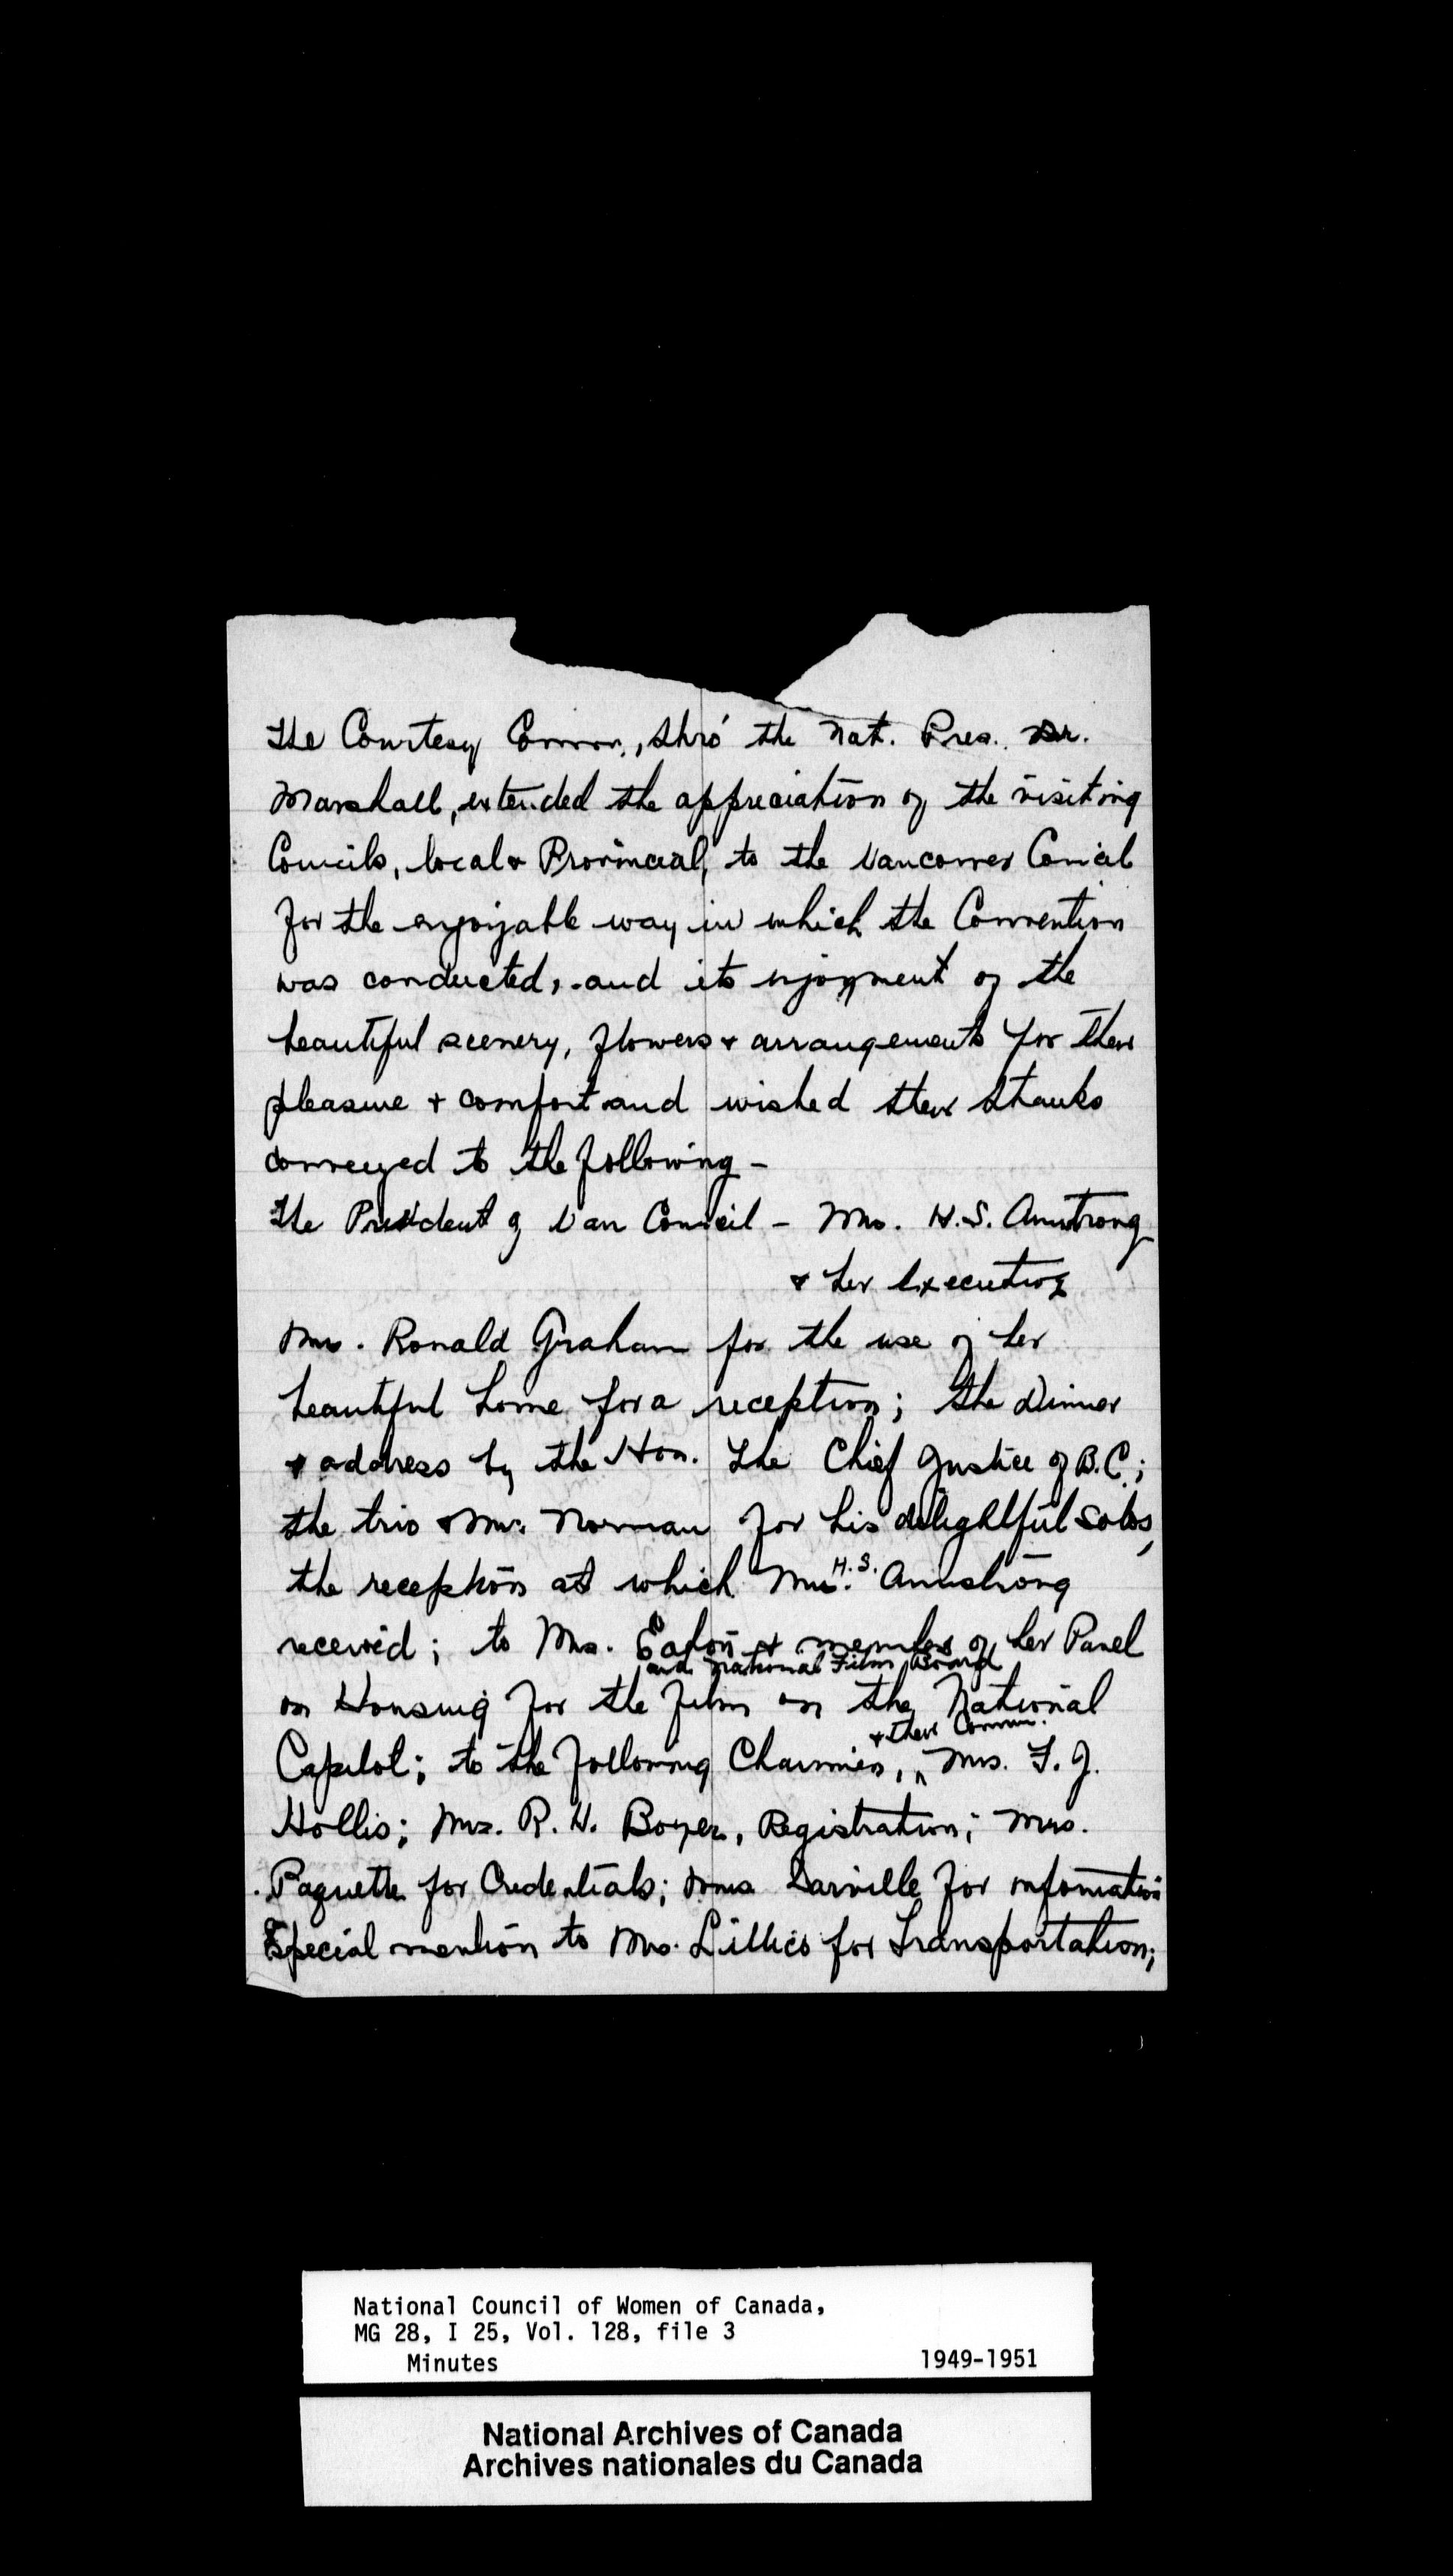 The Courtesy Comm., thro' the Nat. Pres. Dr.
Marshall, extended the appreciation of the visiting
Councils, local & Provincial, to the Vancouver Council
for the enjoyable way in which the Convention
was conducted, and its enjoyment of the
beautiful scenery, flowers & arrangements for their
pleasure + comfort and wished their thanks
conveyed to the following -
The President of Van Council - Mrs. H.S. Armstrong
& her Executive
Mrs. Ronald Graham for the use of her
beautiful home for a reception; the dinner
& address by the Hon. the Chief Justice of B.C.;
the trio & Mr. Norman for his delightful solos,
the reception at which Mrs. H.S. Armstrong
received; to Mrs. Eaton & members of her Panel
and National Film Board
on Housing for the film on the National
& their Comm.
Capitol; to the following Chairmen, Mrs. F. J.
Hollis; Mrs. R. H. Boyer, Registration; Mrs.
Paquette for Credentials; Mrs for information
Special mention to Mrs. Lillico for Transportation;
National Council of Women of Canada,
MG 28, I 25, Vol. 128, file 3
Minutes 1949-1951
National Archives of Canada
Archives nationales du Canada